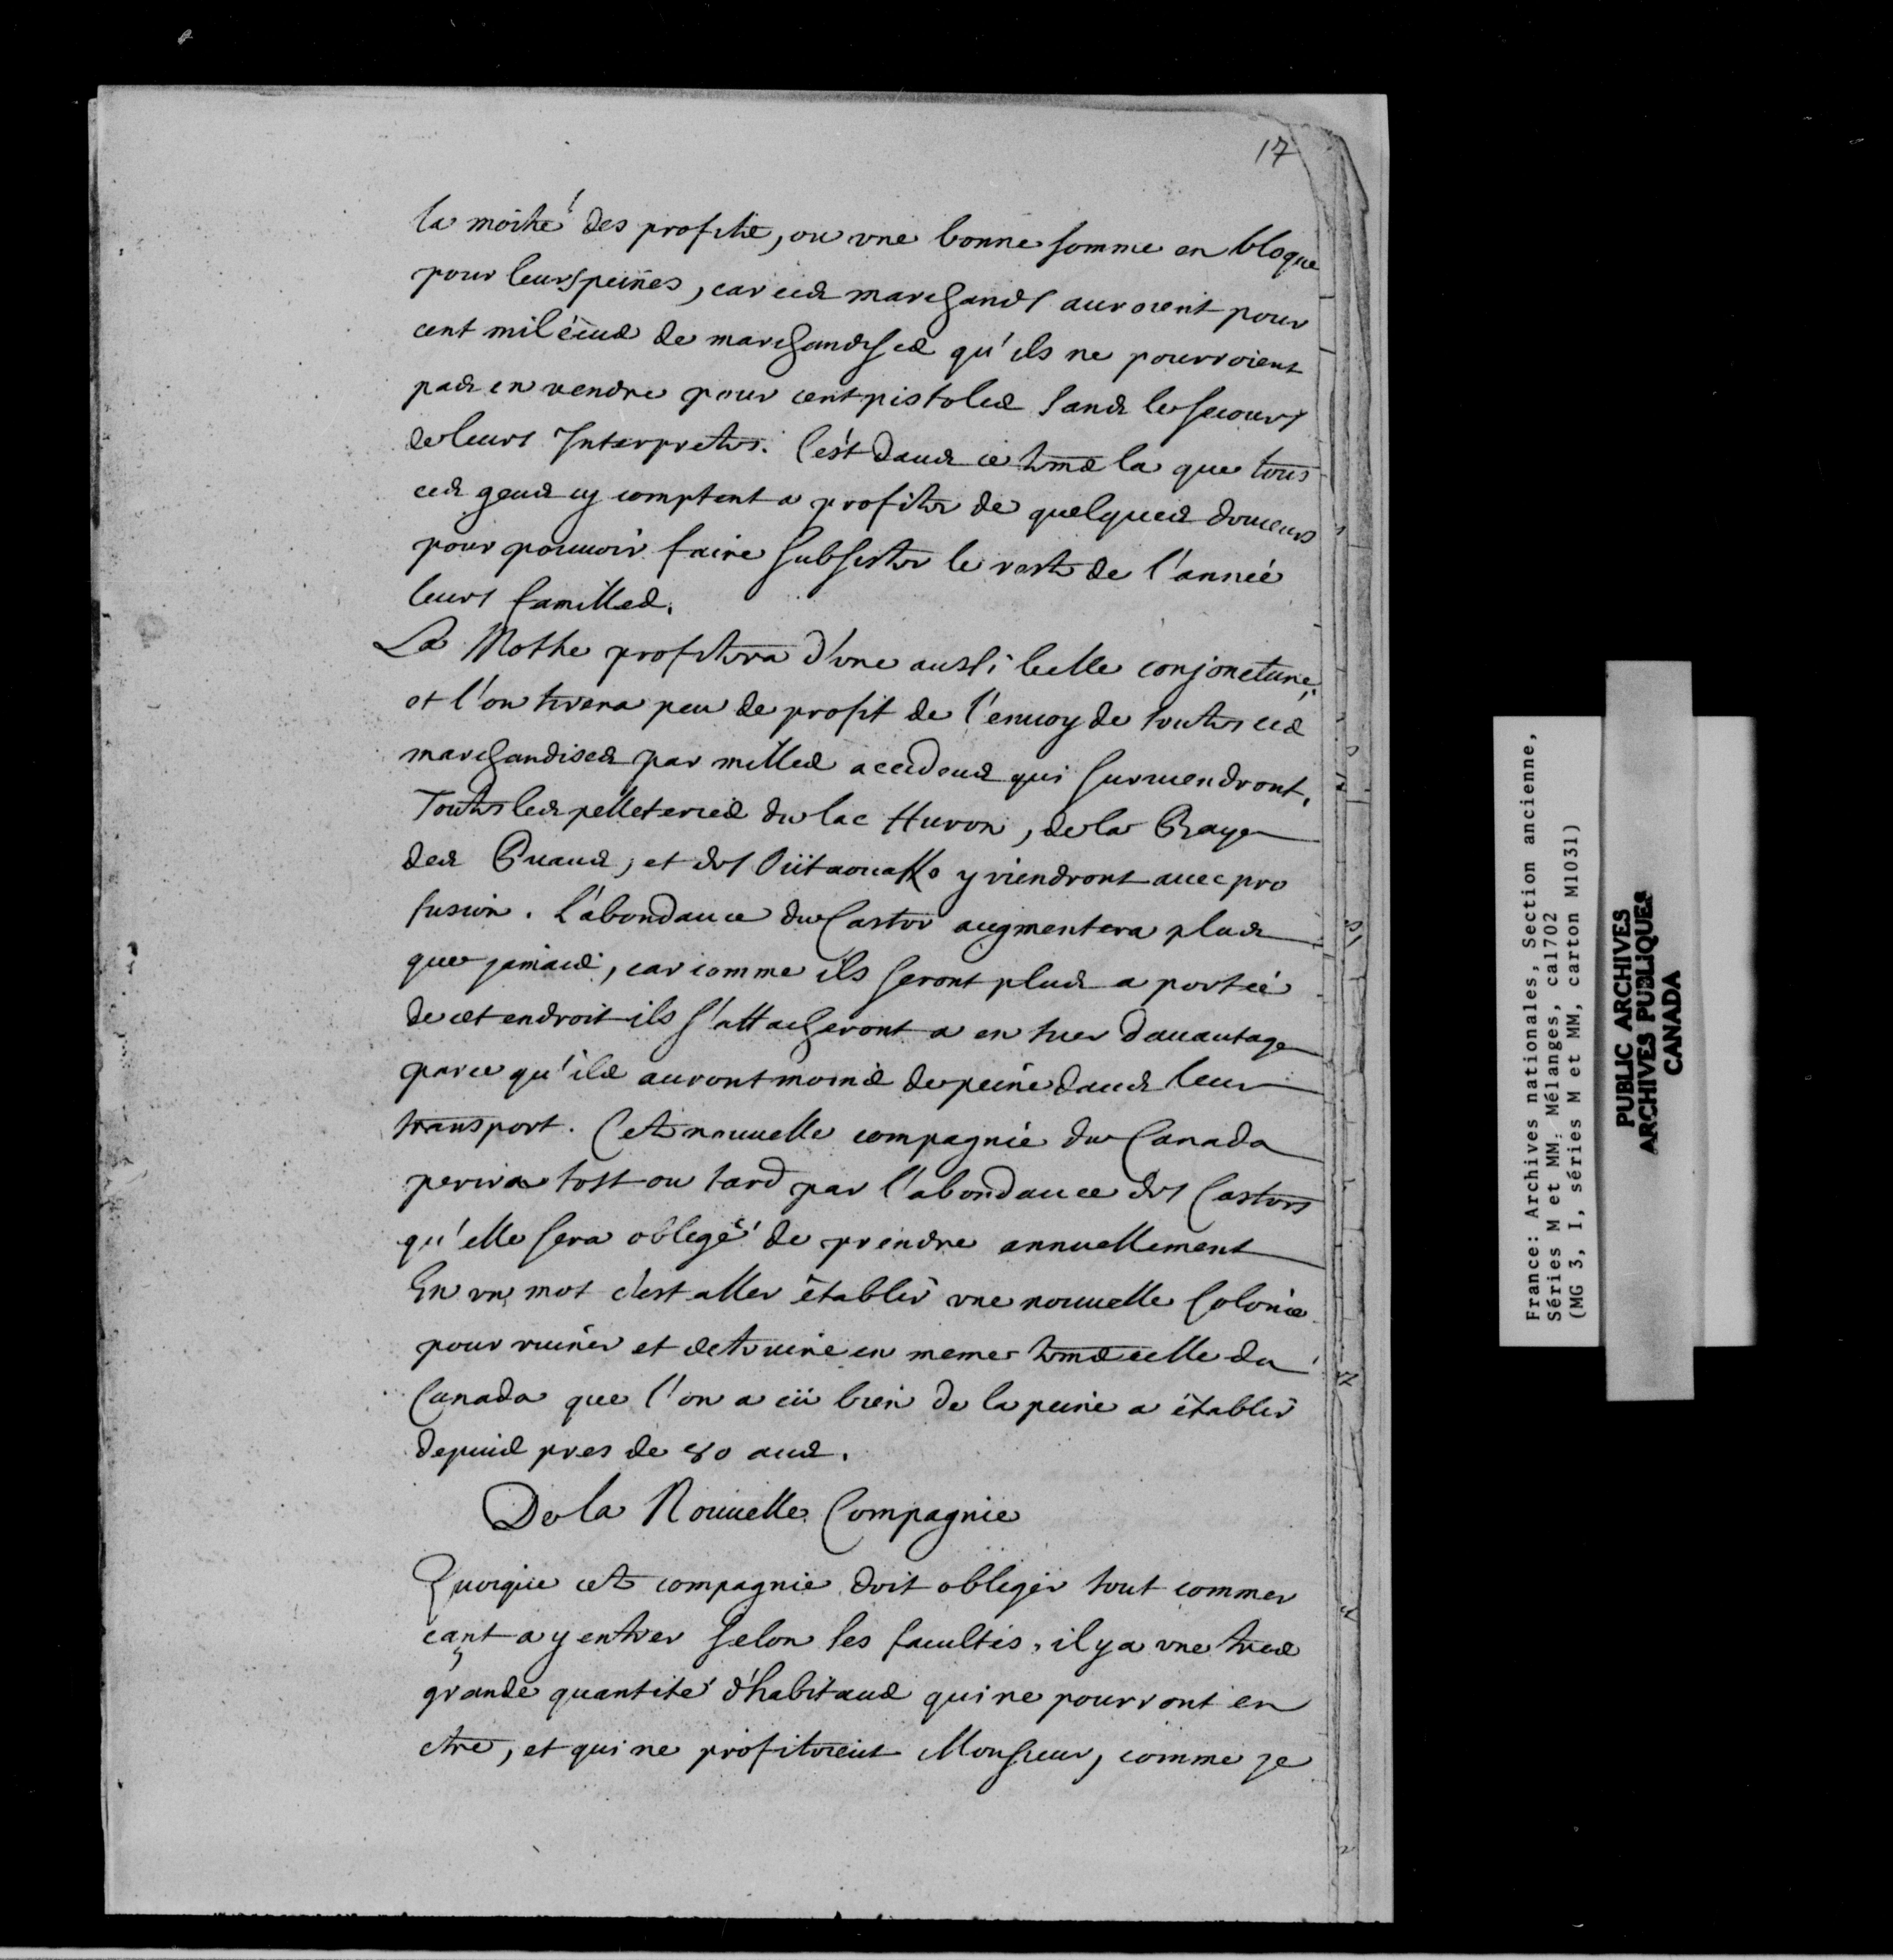 17
la moitié des profits, ou vne bonne somme en bloque
pour leurs peines, car ces marchands auroient pour
cent mil écus de marchandises qu'ils ne pourroient
pas en vendre pour cent pistoles sans le secours
de leurs Interpretes. C'est dans ce tems la que tous
ces gens cy comptent a profiter de quelques douceurs
pour pouuoir faire subsister le reste de l'année
leurs familles.
La Mothe profitera d'vne aussi belle conjoncture,
et l'on tirera peu de profit de l'enuoy de toutes ces
marchandises par milles accidens qui suruiendront.
Toutes les pelleteries du lac Huron, de la Baye
des Puans, et des Oütaouaks y viendront auec pro
fusion. L'abondance du Castor augmentera plus
que jamais, car comme ils seront plus a portée
de cet endroit ils s'attacheront a en tuer dauantage
parce qu'ils auront moins de peine dans leur
transport. Cete nouuelle compagnie du Canada
perira tost ou tard par l'abondance des Castors
qu'elle sera obligé de prendre annuellement
En vn mot c'est aller établir vne nouuelle Colonie
pour ruiner et detruire en meme tems celle du
Canada que l'on a eü bien de la peine a établir
depuis pres de 80 ans.
De la Nouuelle Compagnie
Quoique cete compagnie doit obliger tout commer
çant a y entrer selon ses facultés, il y a vne tres
grande quantité d'habitans qui ne pourront en
etre, et qui ne profitoient Monsieur, comme je
France: Archives nationales, Section ancienne,
Séries M et MM: Mélanges, ca1702
(MG 3, I, séries M et MM, carton M1031)
PUBLIC ARCHIVES
ARCHIVES PUBLIQUES
CANADA